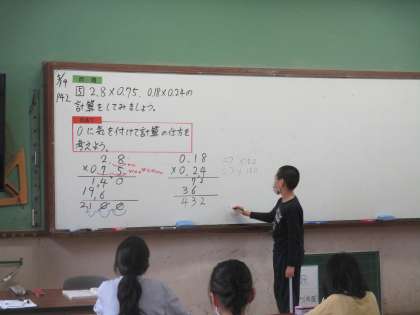 5/9
P42
問題
5 2.8×0.75、0.18×0.24の
計算をしてみましょう。
めあて
0に気を付けて計算の仕方を
考えよう。
2.8
×0.75
140
196
2100
0.18
×0.24
72
36
432